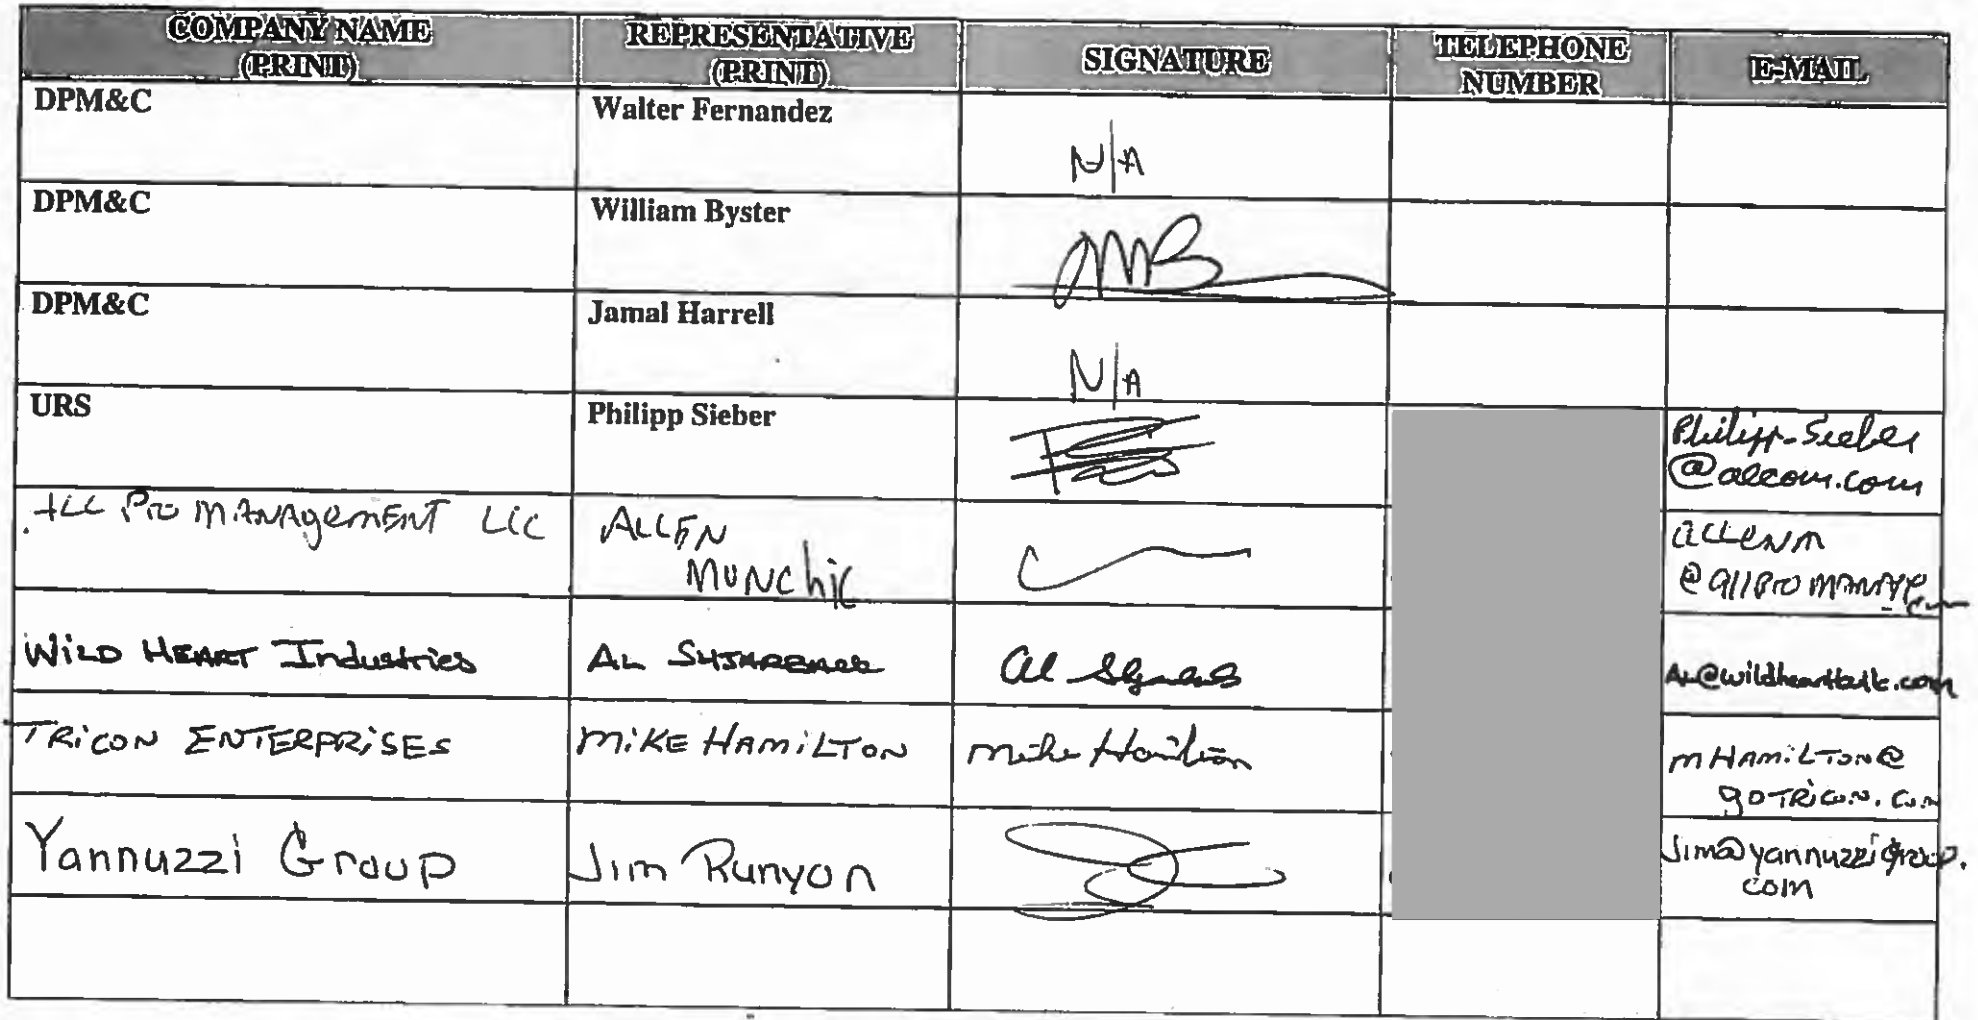 COMPANY NAME
(PRINT)
REPRESENTATIVE
(PRINT)
SIGNATURE
TELEPHONE
NUMBER
E-MAIL
DPM&C
Walter Fernandez
N/A
DPM&C
William Byster
DPM&C
Jamal Harrell
N/A
URS
Philipp Sieber
Philipp-Sieber
@aecom.com
ALL Pro MANAgemENT LLC
ALLEN
MUNChiC
aLLENM
WiLD HEART Industries
AL
Al
TRiCON ENTERPRiSES
MiKE HAMiLTON
Mike Hamilton
mHAMiLTON@
goTRicon.com
Yannuzzi Group
Jim Runyon
Jim@yannuzzigroup.
com